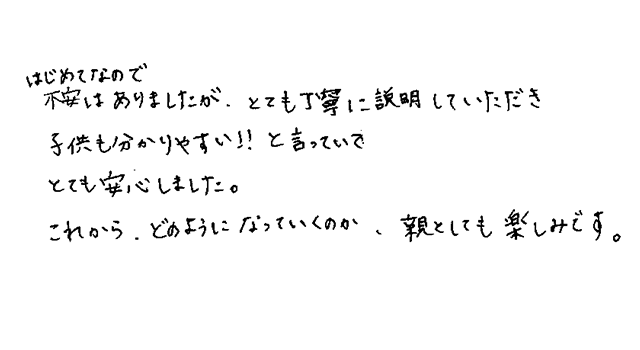 はじめてなので
不安はありましたが、とても丁寧に説明していただき
子供も分かりやすい!!と言っていて
とても安心しました。
これから、どのようになっていくのか、親としても楽しみです。